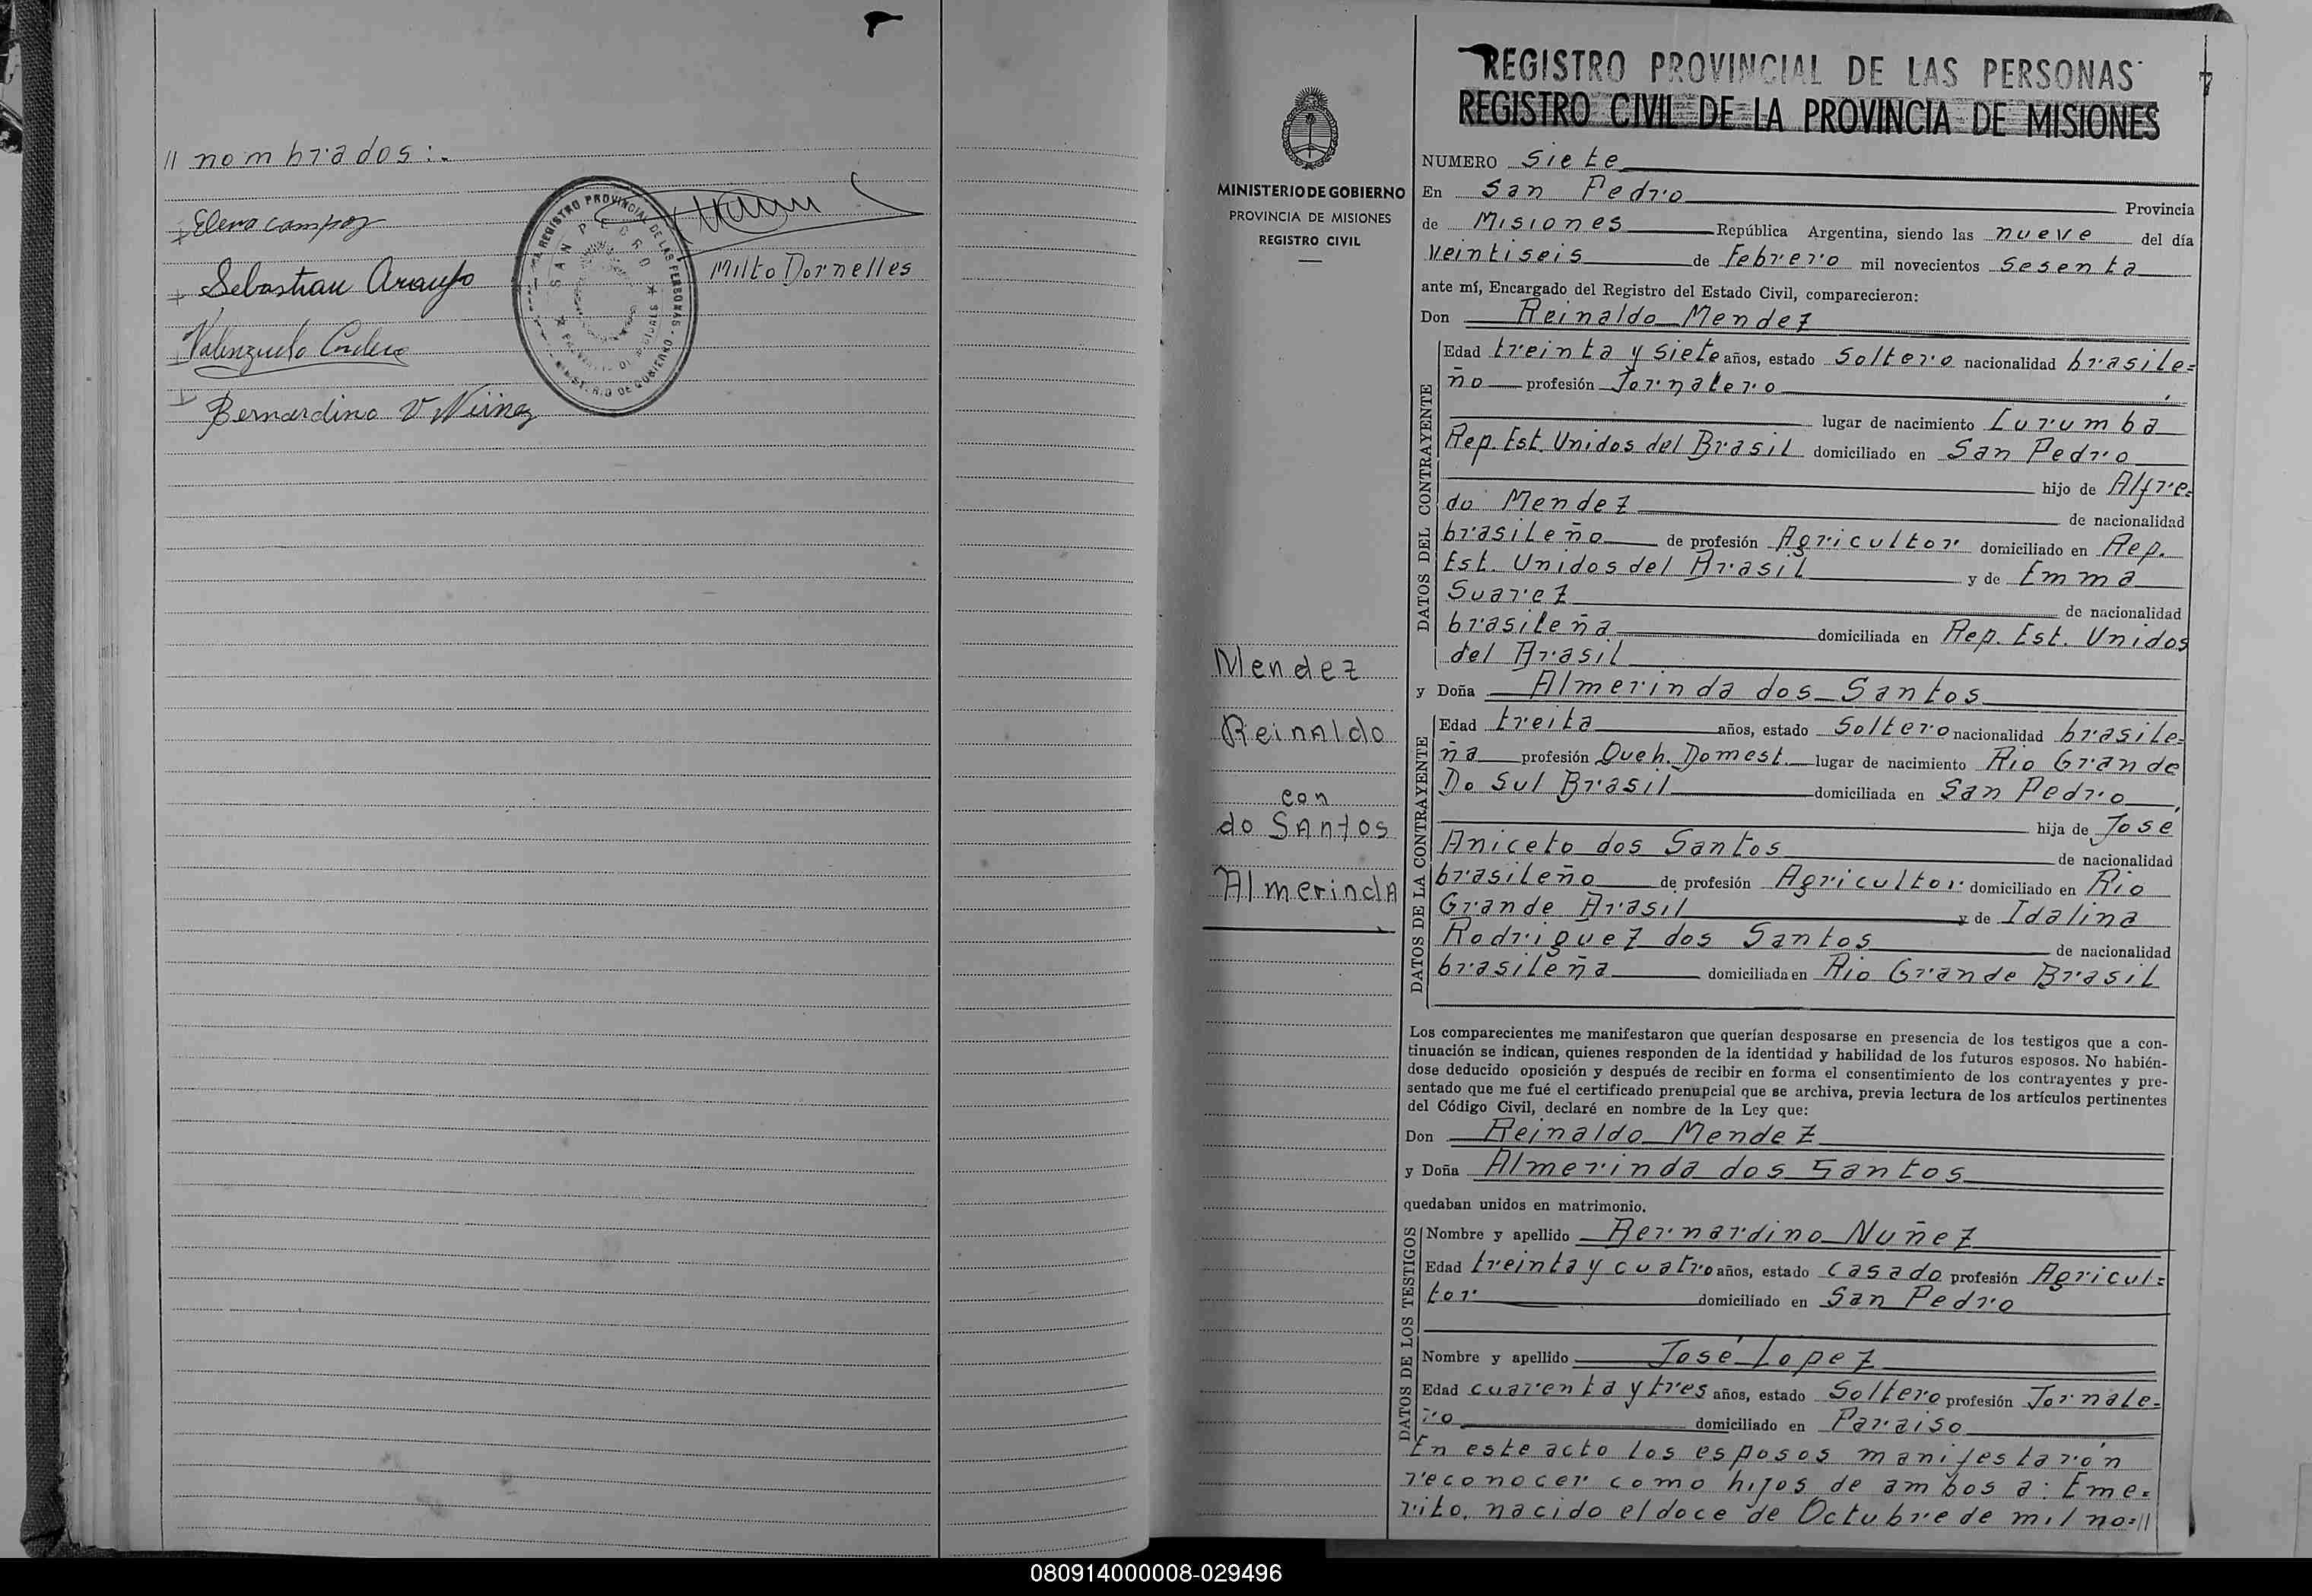 // nombrados:.
Elena campos
Sebastian Araujo
Milto Dornelles
Bernardino V Nuñez
REGISTRO PROVINCIAL DE LAS PERSONAS
SAN PEDRO
MINISTERIO DE GOBIERNO
PROVINCIA DE MISIONES
REGISTRO CIVIL
Mendez
Reinaldo
con
do Santos
Almerinda
REGISTRO PROVINCIAL DE LAS PERSONAS
REGISTRO CIVIL DE LA PROVINCIA DE MISIONES
7
NUMERO Siete
En San Pedro Provincia
de Misiones República Argentina, siendo las nueve del día
veintiseis de Febrero mil novecientos sesenta
ante mí, Encargado del Registro del Estado Civil, comparecieron:
Don Reinaldo Mendez
DATOS DEL CONTRAYENTE
Edad treinta y siete años, estado Soltero nacionalidad brasile=
ño profesión Jornalero
lugar de nacimiento Curumbá
Rep. Est. Unidos del Brasil domiciliado en San Pedro
hijo de Alfre=
do Mendez de nacionalidad
brasileño de profesión Agricultor domiciliado en Rep.
Est. Unidos del Brasil y de Emma
Suarez de nacionalidad
brasileña domiciliada en Rep. Est. Unidos
del Brasil
y Doña Almerinda dos Santos
DATOS DE LA CONTRAYENTE
Edad treita años, estado Soltero nacionalidad brasile=
ña profesión Queh. Domest. lugar de nacimiento Rio Grande
Do Sul Brasil domiciliada en San Pedro,
hija de José
Aniceto dos Santos de nacionalidad
brasileño de profesión Agricultor domiciliado en Rio
Grande Brasil y de Idalina
Rodriguez dos Santos de nacionalidad
brasileña domiciliada en Rio Grande Brasil
Los comparecientes me manifestaron que querían desposarse en presencia de los testigos que a con-
tinuación se indican, quienes responden de la identidad y habilidad de los futuros esposos. No habién-
dose deducido oposición y después de recibir en forma el consentimiento de los contrayentes y pre-
sentado que me fué el certificado prenupcial que se archiva, previa lectura de los artículos pertinentes
del Código Civil, declaré en nombre de la Ley que:
Don Reinaldo Mendez
y Doña Almerinda dos Santos
quedaban unidos en matrimonio.
DATOS DE LOS TESTIGOS
Nombre y apellido Bernardino Nuñez
Edad treinta y cuatro años, estado casado profesión Agricul=
tor domiciliado en San Pedro
Nombre y apellido José Lopez
Edad cuarenta y tres años, estado Soltero profesión Jornale=
ro domiciliado en Paraiso
En este acto los esposos manifestarón
reconocer como hijos de ambos a: Eme=
rito, nacido el doce de Octubre de mil no=//
080914000008-029496